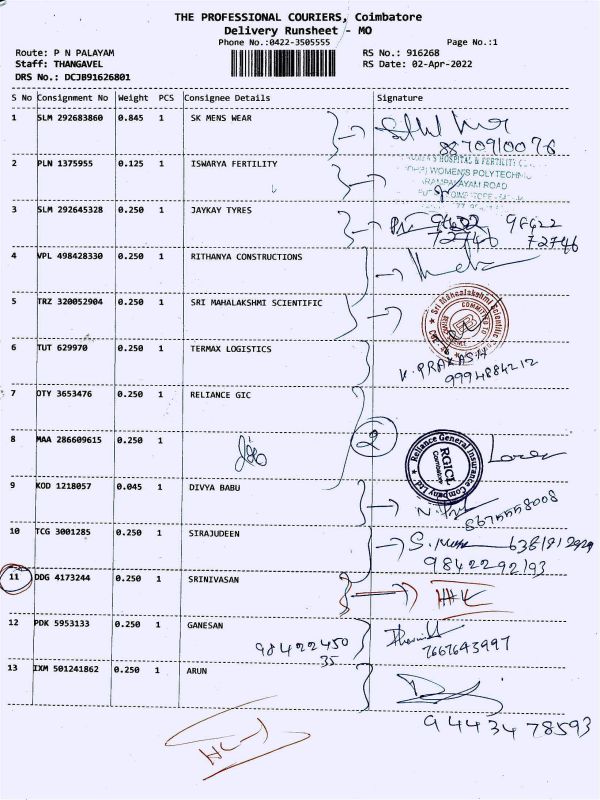 THE PROFESSIONAL COURIERS, Coimbatore
Delivery Runsheet - MO
Phone No.:0422-3505555
Page No.:1
Route: P N PALAYAM
RS No.: 916268
Staff: THANGAVEL
RS Date: 02-Apr-2022
DRS No.: DCJB91626801
S No Consignment No Weight PCS Consignee Details Signature
1 SLM 292683860 0.845 1 SK MENS WEAR
8870910076
2 PLN 1375955 0.125 1 ISWARYA FERTILITY
WOMEN'S HOSPITAL & FERTILITY
WOMEN'S POLYTECHNIC
ROAD
3 SLM 292645328 0.250 1 JAYKAY TYRES
98622
72746
72746
4 VPL 498428330 0.250 1 RITHANYA CONSTRUCTIONS
5 TRZ 320052904 0.250 1 SRI MAHALAKSHMI SCIENTIFIC
Sri Mahaalakshmi Scientific Co
COMMITTED TO
6 TUT 629970 0.250 1 TERMAX LOGISTICS
V. PRAKASH
9994884212
7 OTY 3653476 0.250 1 RELIANCE GIC
8 MAA 286609615 0.250 1
2
Reliance General Insurance Company Ltd.
RGICL
Coimbatore
9 KOD 1218057 0.045 1 DIVYA BABU
10 TCG 3001285 0.250 1 SIRAJUDEEN
9842292193
11 DDG 4173244 0.250 1 SRINIVASAN
12 PDK 5953133 0.250 1 GANESAN
98422450
35
7667643997
13 IXM 501241862 0.250 1 ARUN
9443478593